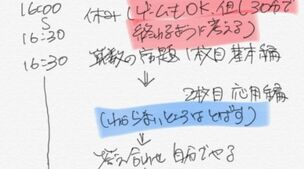 16:00
S
16:30
休み (ゲームもOK. 但し30分で
終わるように考える)
16:30 算数の宿題 1枚目 基本編
2枚目 応用編
(わからないところはとばす)
答え合わせ 自分でやる